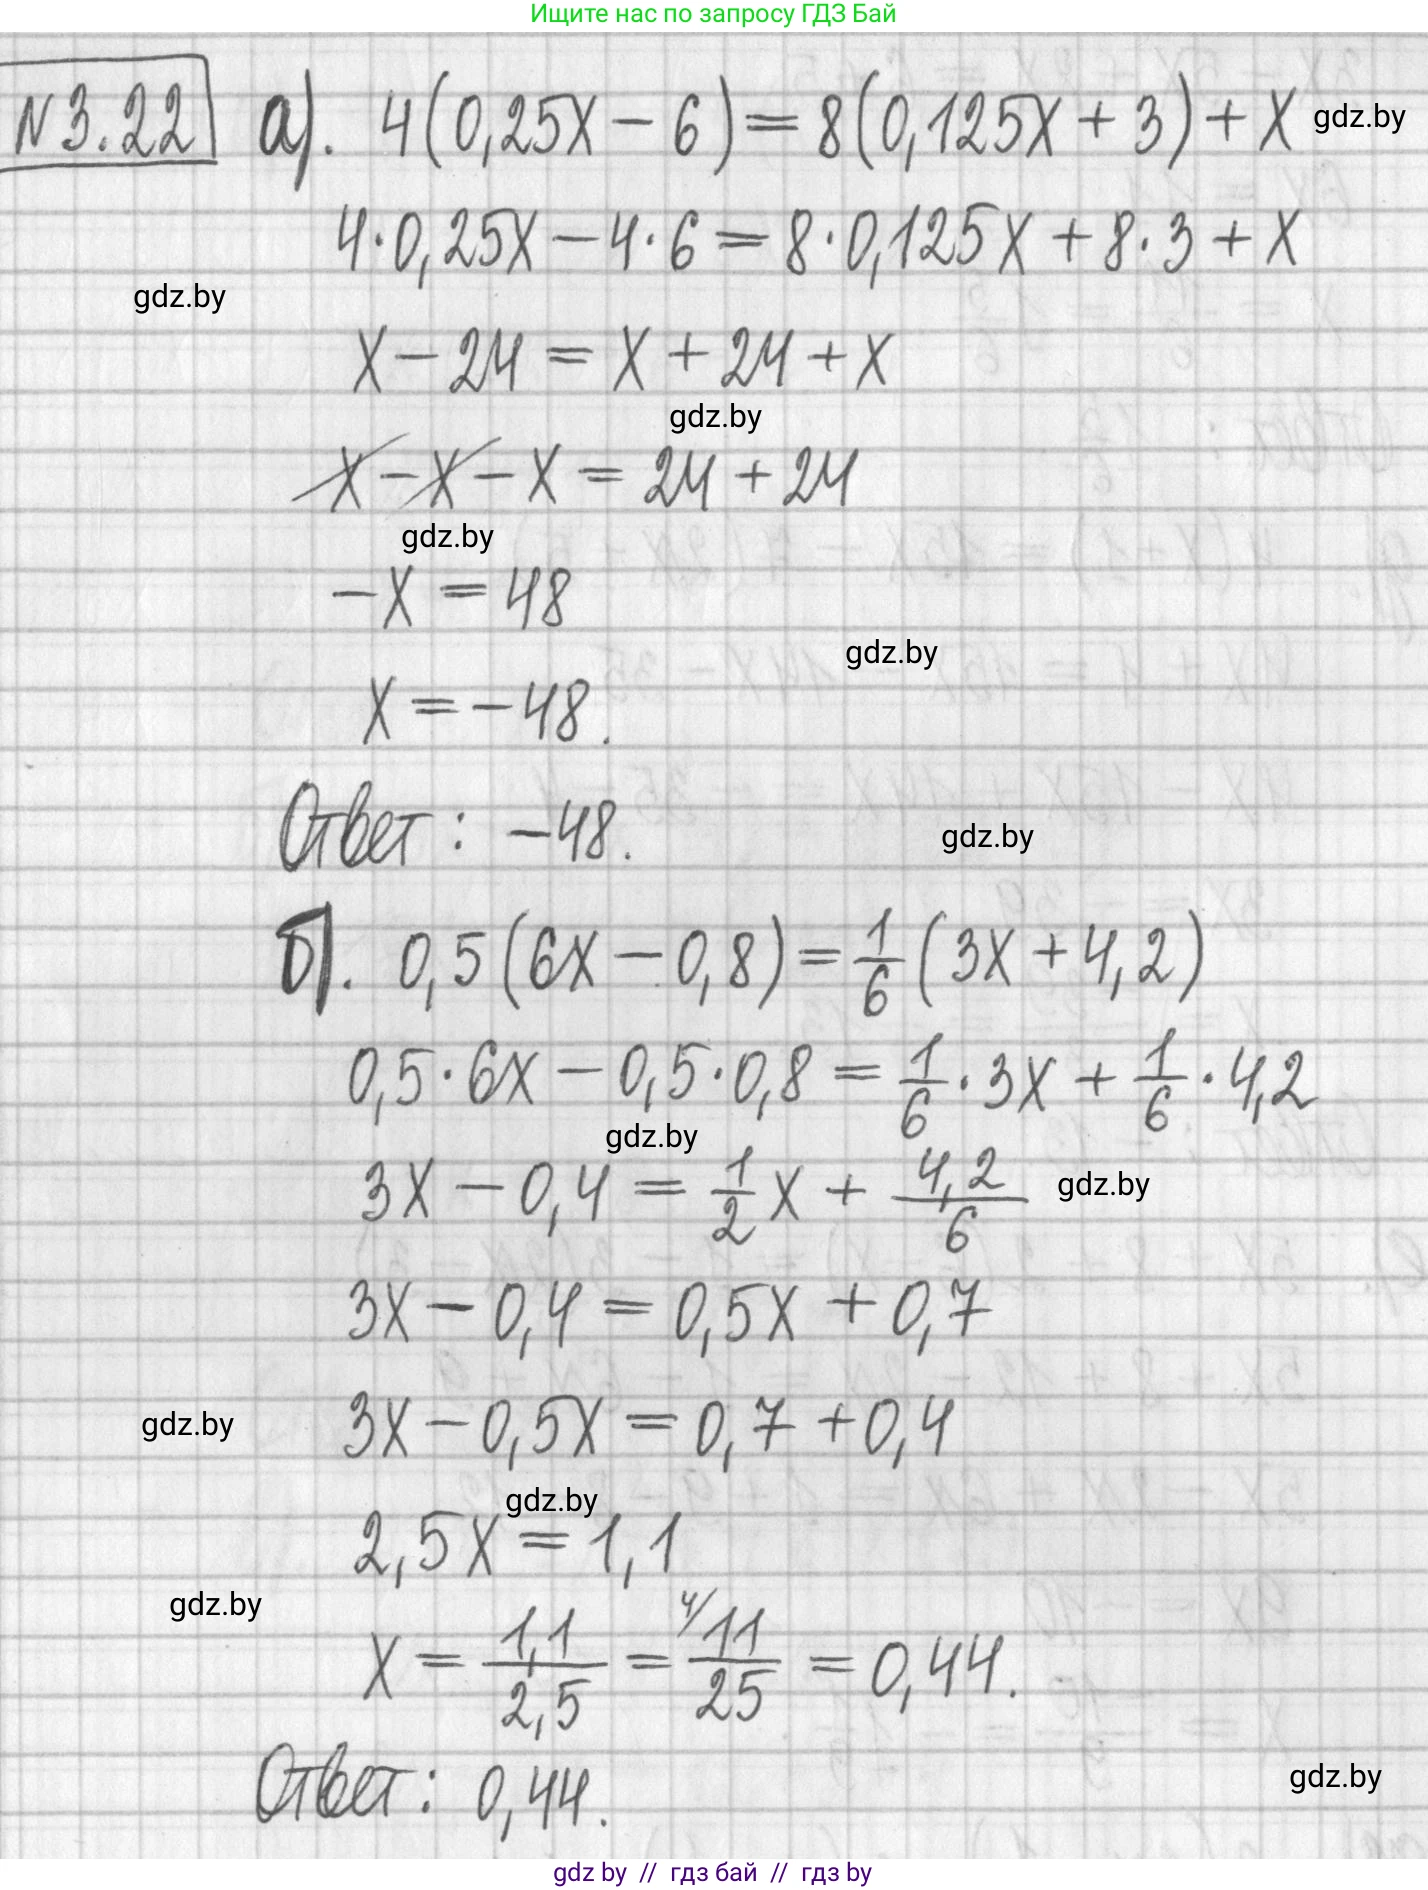 Ищите нас по запросу ГДЗ Бай
N 3.22 а). 4(0,25x − 6) = 8(0,125x + 3) + x gdz.by
4·0,25x − 4·6 = 8·0,125x + 8·3 + x
gdz.by
x − 24 = x + 24 + x
gdz.by
x − x − x = 24 + 24
gdz.by
−x = 48
gdz.by
x = −48.
Ответ: −48.
gdz.by
б). 0,5(6x − 0,8) = 1/6 (3x + 4,2)
0,5·6x − 0,5·0,8 = 1/6 · 3x + 1/6 · 4,2
gdz.by
3x − 0,4 = 1/2 x + 4,2/6 gdz.by
3x − 0,4 = 0,5x + 0,7
3x − 0,5x = 0,7 + 0,4
gdz.by
gdz.by
2,5x = 1,1
gdz.by
x = 1,1/2,5 = 4/ 11/25 = 0,44.
gdz.by
Ответ: 0,44.
gdz by // гдз бай // гдз by